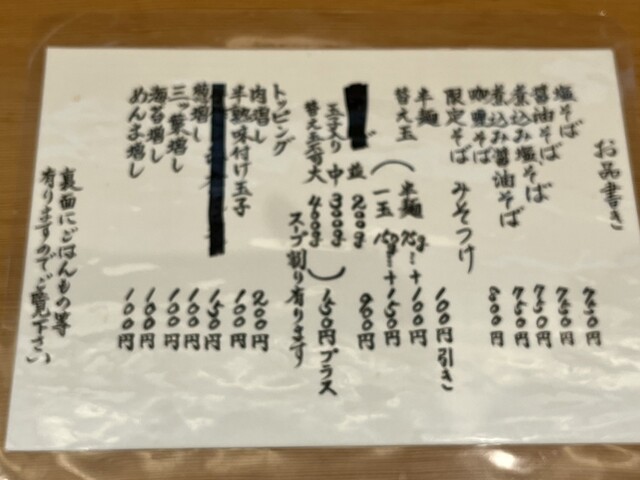 お品書き
塩そば 750円
醤油そば 750円
煮込み塩そば 750円
煮込み醤油そば 750円
咖喱そば 800円
限定そば みそつけ
半麺 100円引き
替え玉 半麺 75g…+100円
一玉 150g…+150円
並 200g 900円
中 300g
替え玉 大 400g 150円プラス
スープ割り有ります
トッピング
肉増し 200円
半熟味付け玉子 100円
150円
葱増し 100円
三ッ葉増し 100円
海苔増し 100円
めんま増し 100円
裏面にごはんもの等
有りますのでご覧下さい